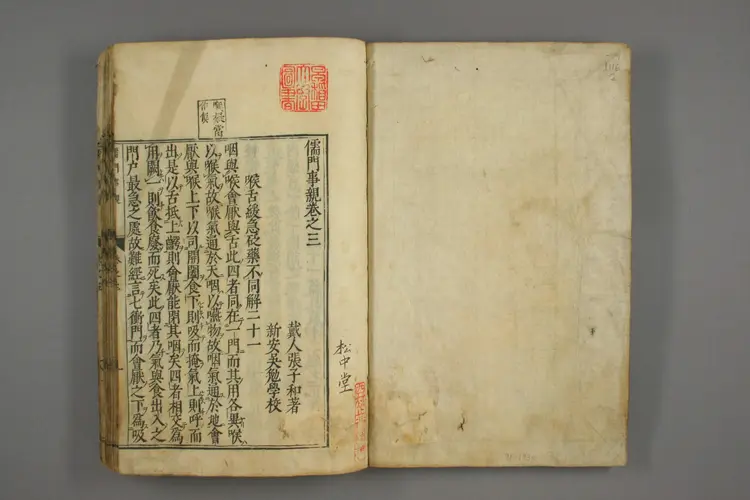 儒門事親卷之三
戴人張子和著
新安吳勉學校
喉舌緩急砭藥不同解二十一
咽與喉會厭與舌此四者同在一門而其用各異喉
以候氣故喉氣通於天咽以嚥物故咽氣通於地會
厭與喉上下以司開闔食下則吸而掩氣上則呼而
出是以舌抵上齶則會厭能閉其咽矣四者相交為
用闕一則飲食廢而死矣此四者乃氣與食出入之
門戶最急之處故難經言七衝門而會厭之下為吸
松中堂